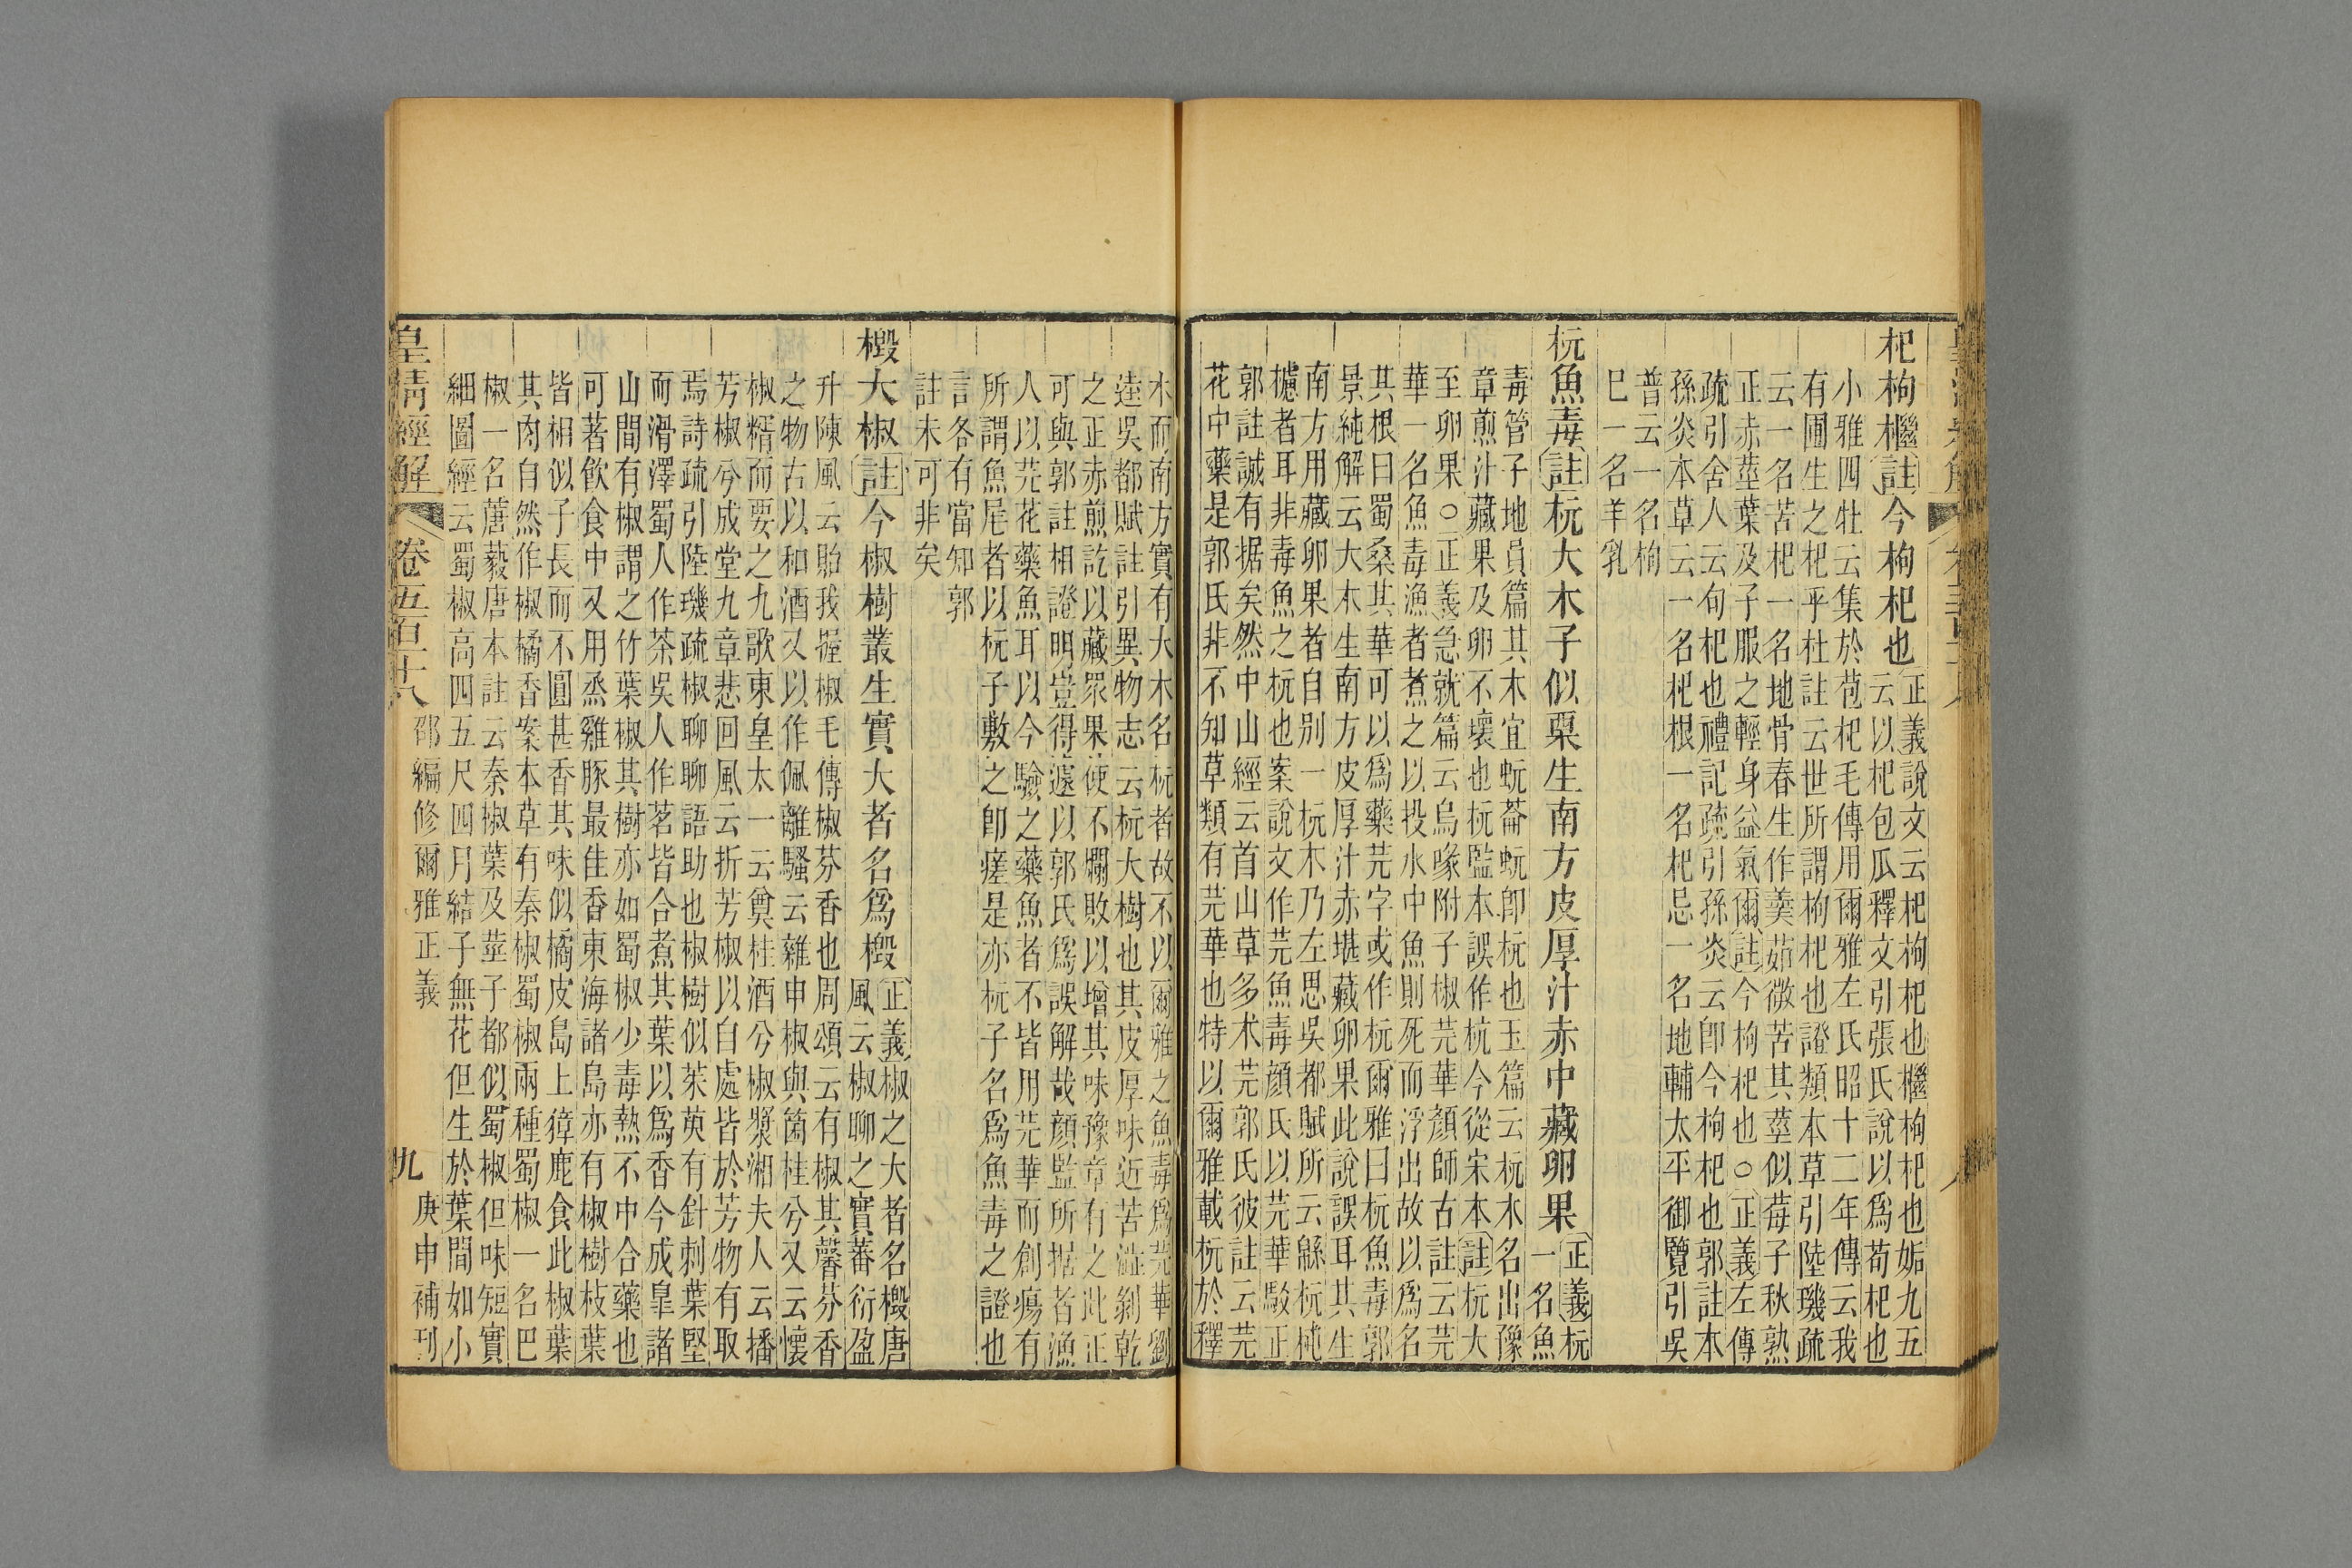 杞枸檵註今枸杞也正義說文云杞枸杞也檵枸杞也姤九五
云以杞包瓜釋文引張氏說以爲苟杞也
小雅四牡云集於苞杞毛傳用爾雅左氏昭十二年傳云我
有圃生之杞乎杜註云世所謂枸杞也證類本草引陸璣疏
云一名苦杞一名地骨春生作羹茹微苦其莖似莓子秋熟
正赤莖葉及子服之輕身益氣爾註今枸杞也○正義左傳
疏引舍人云句杞也禮記疏引孫炎云卽今枸杞也郭註本
孫炎本草云一名杞根一名杞忌一名地輔太平御覽引吳
普云一名枸
巳一名羊乳
杬魚毒註杬大木子似栗生南方皮厚汁赤中藏卵果正義杬
一名魚
毒管子地員篇其木宜蚖菕蚖卽杬也玉篇云杬木名出豫
章煎汁藏果及卵不壞也杬監本誤作杭今從宋本註杬大
至卵果○正義急就篇云烏喙附子椒芫華顏師古註云芫
華一名魚毒漁者煮之以投水中魚則死而浮出故以爲名
其根曰蜀桑其華可以爲藥芫字或作杬爾雅曰杬魚毒郭
景純解云大木生南方皮厚汁赤堪藏卵果此說誤耳其生
南方用藏卵果者自別一杬木乃左思吳都賦所云緜杬杶
櫨者耳非毒魚之杬也案說文作芫魚毒顏氏以芫華駁正
郭註誠有据矣然中山經云首山草多朮芫郭氏彼註云芫
花中藥是郭氏非不知草類有芫華也特以爾雅載杬於釋
木而南方實有大木名杬者故不以爾雅之魚毒爲芫華劉
逵吳都賦註引異物志云杬大樹也其皮厚味近苦澁剝乾
之正赤煎訖以藏眾果使不爛敗以增其味豫章有之此正
可與郭註相證明豈得遽以郭氏爲誤解哉顏監所据者漁
人以芫花藥魚耳以今驗之藥魚者不皆用芫華而創瘍有
所謂魚尾者以杬子敷之卽瘥是亦杬子名爲魚毒之證也
言各有當知郭
註未可非矣
椴大椒註今椒樹叢生實大者名爲椴正義椒之大者名椴唐
風云椒聊之實蕃衍盈
升陳風云貽我握椒毛傳椒芬香也周頌云有椒其馨芬香
之物古以和酒又以作佩離騷云雜申椒與箘桂兮又云懷
椒糈而要之九歌東皇太一云奠桂酒兮椒漿湘夫人云播
芳椒兮成堂九章悲回風云折芳椒以自處皆於芳物有取
焉詩疏引陸璣疏椒聊聊語助也椒樹似茱萸有針刺葉堅
而滑澤蜀人作茶吳人作茗皆合煮其葉以爲香今成臯諸
山間有椒謂之竹葉椒其樹亦如蜀椒少毒熱不中合藥也
可著飲食中又用烝雞豚最佳香東海諸島亦有椒樹枝葉
皆相似子長而不圓甚香其味似橘皮島上獐鹿食此椒葉
其肉自然作椒橘香案本草有秦椒蜀椒兩種蜀椒一名巴
椒一名蓎藙唐本註云秦椒葉及莖子都似蜀椒但味短實
細圖經云蜀椒高四五尺四月結子無花但生於葉間如小
皇清經解 卷五百十八 邵編修爾雅正義 九 庚申補刊